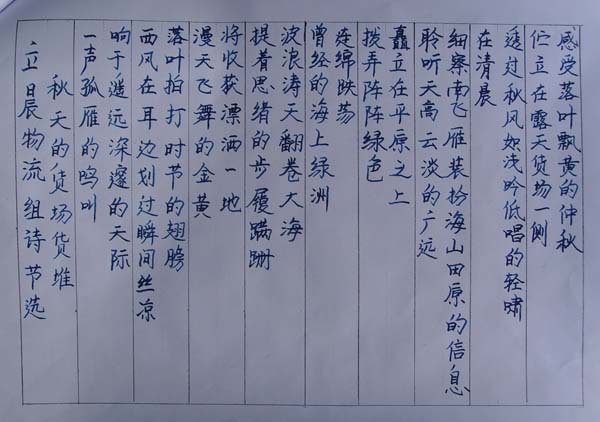 立日辰物流组诗节选
秋天的货场货堆
一声孤雁的鸣叫
响于遥远深邃的天际
西风在耳边划过瞬间丝凉
落叶拍打时节的翅膀
漫天飞舞的金黄
将收获漂洒一地
提着思绪的步履蹒跚
波浪涛天翻卷大海
曾经的海上绿洲
连绵映荡
拨弄阵阵绿色
矗立在平原之上
聆听天高云淡的广远
细察南飞雁装扮海山田原的信息
在清晨
透过秋风如浅吟低唱的轻啸
伫立在露天货场一侧
感受落叶飘黄的仲秋